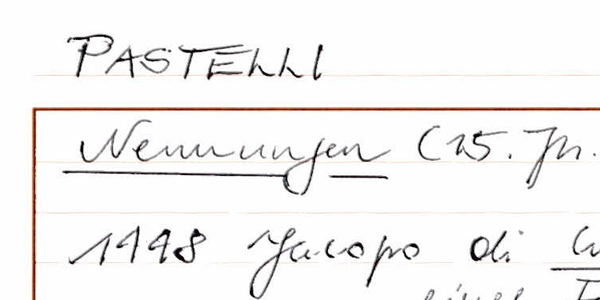 PASTELLI
Nennungen (15. Jh.
1448 Jacopo di